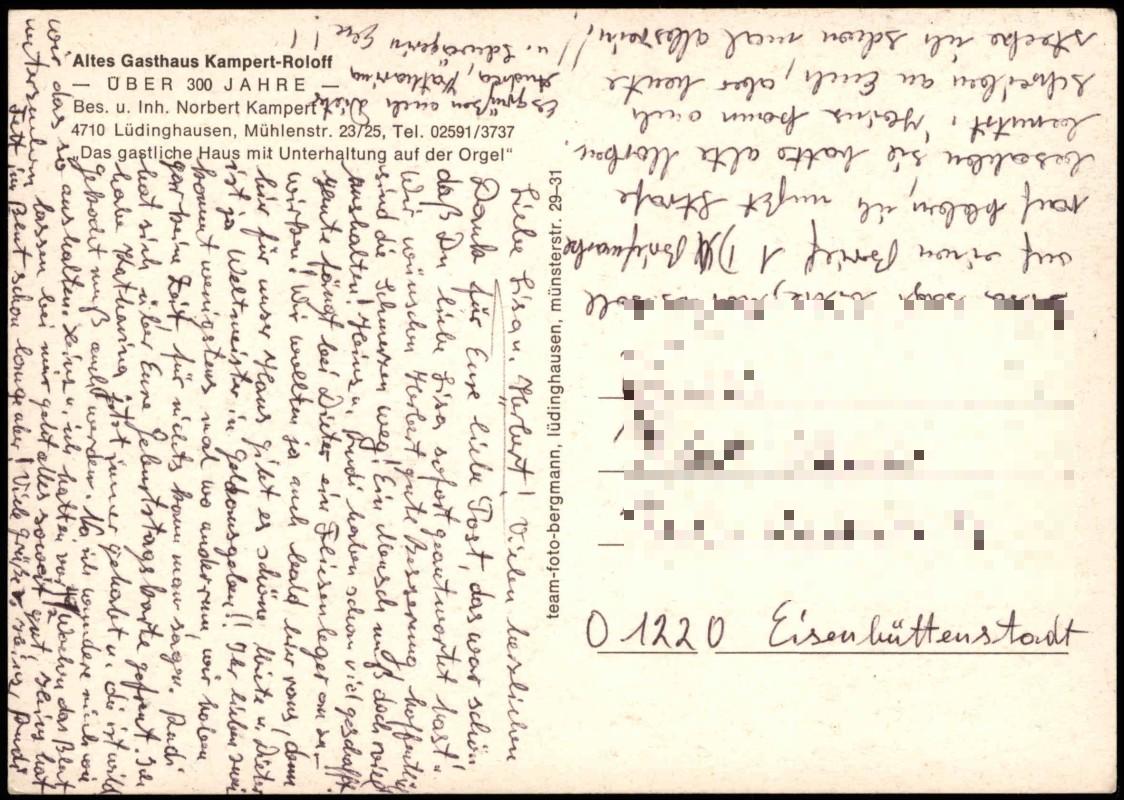 Altes Gasthaus Kampert-Roloff
— ÜBER 300 JAHRE —
Bes. u. Inh. Norbert Kampert
4710 Lüdinghausen, Mühlenstr. 23/25, Tel. 02591/3737
„Das gastliche Haus mit Unterhaltung auf der Orgel“
team-foto-bergmann, lüdinghausen, münsterstr. 29-31
Liebe Lisa u. Herbert! Vielen herzlichen
Dank für Eure liebe Post, das war schön
daß Du liebe Lisa sofort geantwortet hast.
Wir wünschen Herbert gute Besserung hoffentlich
sind die Schmerzen weg! Ein Mensch muß doch viel
aushalten! Heinz u. Rudi haben schon viel geschafft,
heute fängt bei Dieter ein Fliesenleger an zu
wirken! Wir wollten ja auch bald hier raus, denn
für unser Haus gibt es schöne Miete u. Dieter
ist ja Weltmeister in Geldausgeben!! Ihr lieben zwei
kommt wenigstens mal wo anders rum, wir haben
gar keine Zeit für nichts kann man sagen. Rudi
hat sich über Eure Geburtstagskarte gefreut. Ich
habe Katharina jetzt immer gehabt u. die ist wild
muß auch werden. Na ich wundere mich wie
wir das so aushalten. Heinz u. ich hatten vor Wochen das Blut
untersuchen lassen bei mir geht alles soweit gut, Heinz hat
Fett im Blut schon lange aber! Viele Grüße v. Heinz, Rudi
Es grüßen auch Dieter
Andrea, Katharina
u. Schwägerin !!
soll
auf einen Brief 1 DM Briefmarke
rauf kleben, ich mußt Strafe
bezahlen sie hatte alte Marken
benutzt. Heinz kann auch
schreiben an Euch, aber heute
stecke ich schon mal alles rein!
O 1220 Eisenhüttenstadt